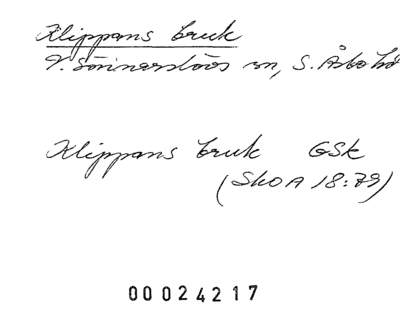 Klippans bruk
V. Sönnarslövs sn, S. Åsbo hd
Klippans bruk GSk
(SkoA 18:79)
00024217